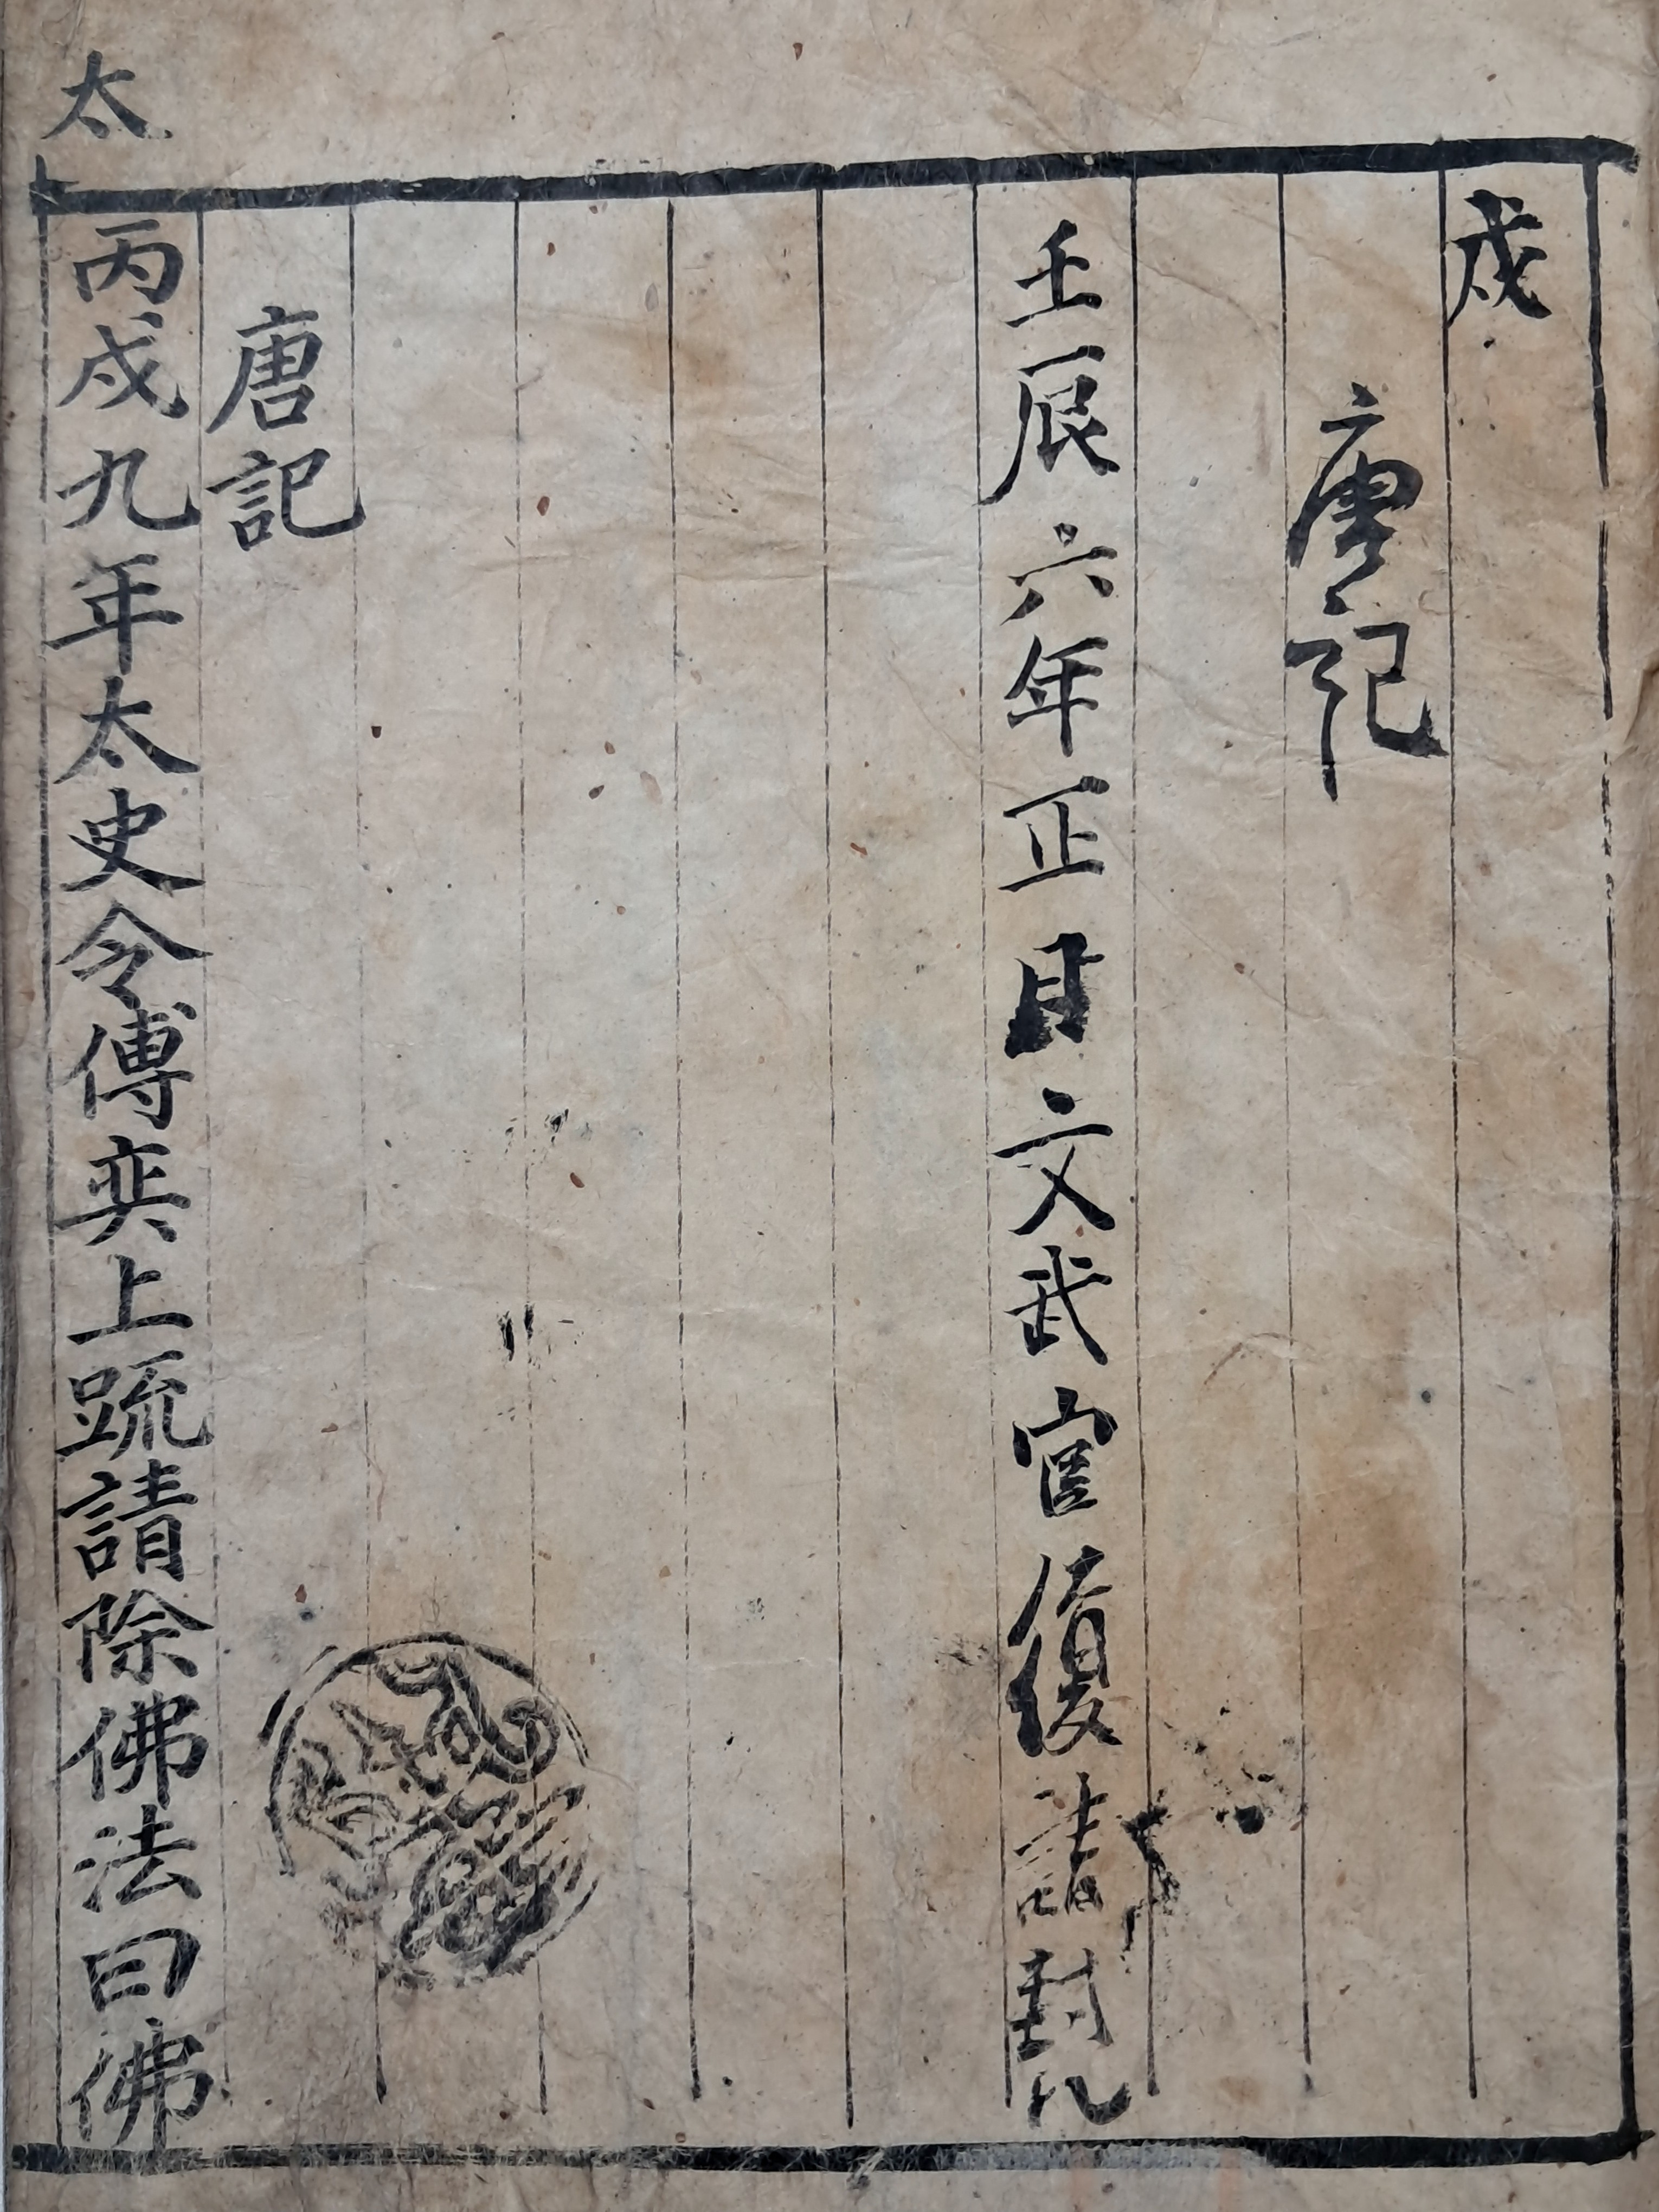 戍
唐記
壬辰六年正月文武官復請封
唐記
太
丙戌九年太史令傅奕上疏請除佛法曰佛